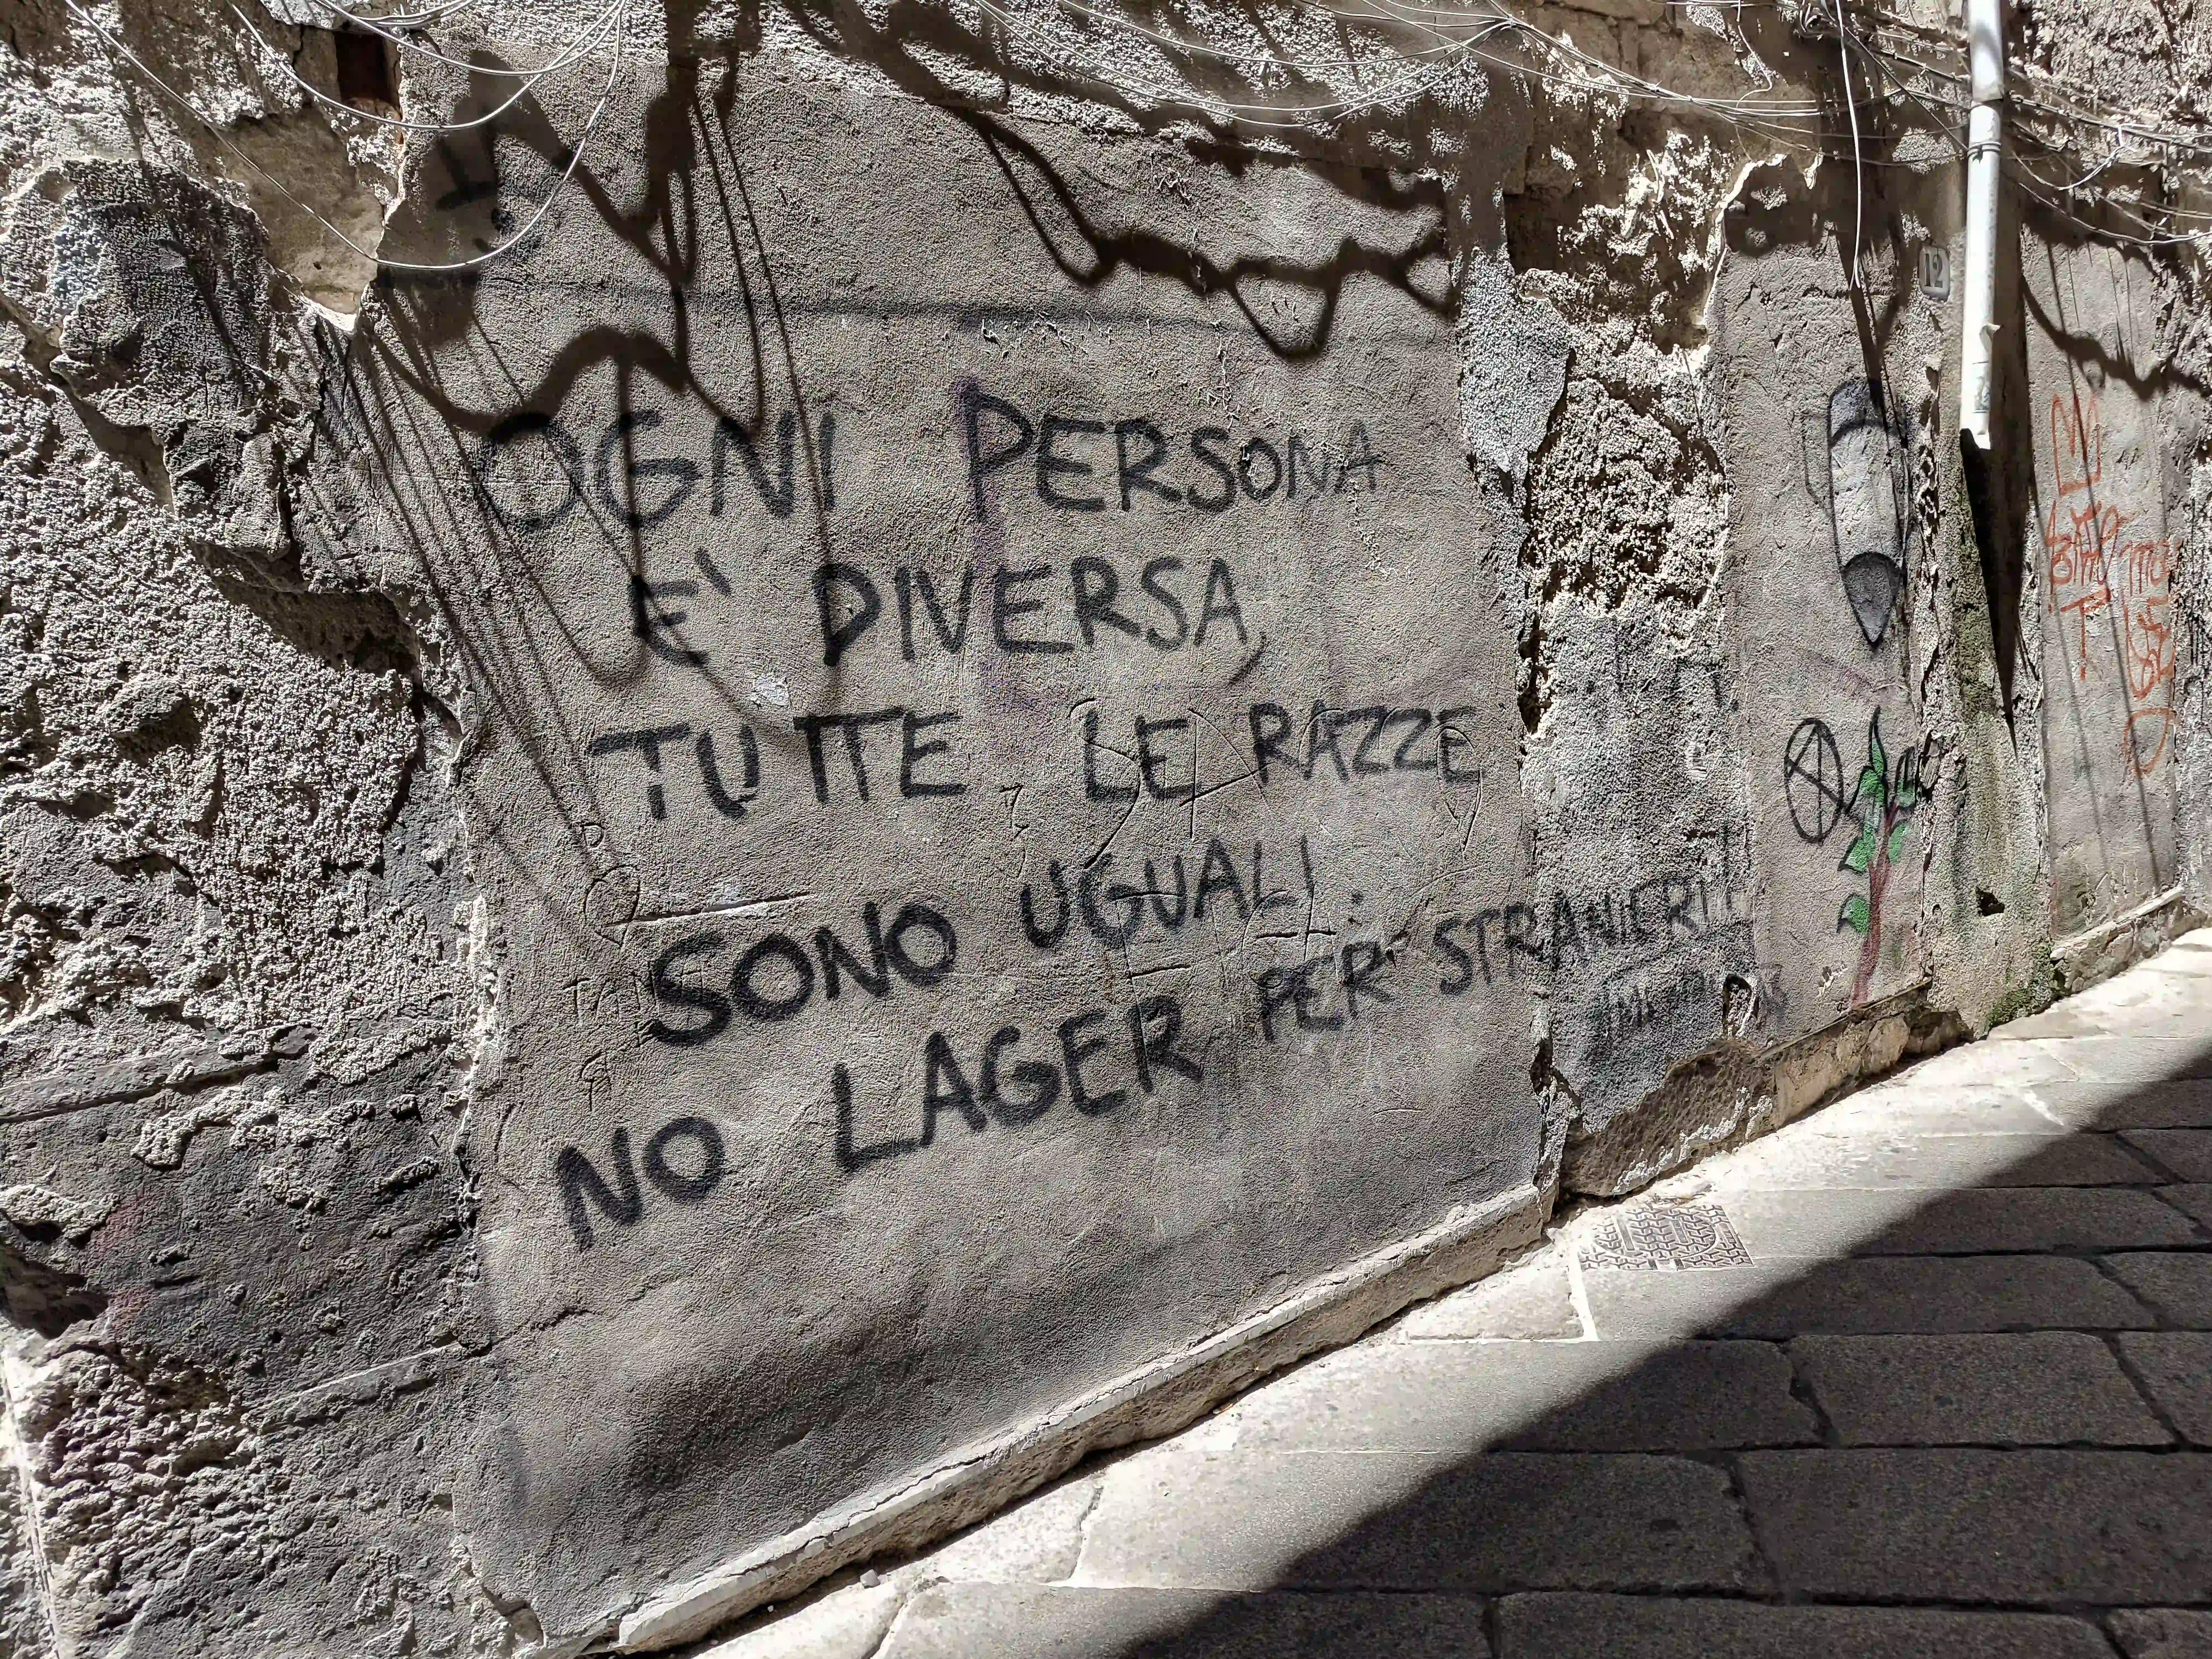 OGNI PERSONA
E' DIVERSA,
TUTTE LE RAZZE
SONO UGUALI.
NO LAGER PER STRANIERI!!
12